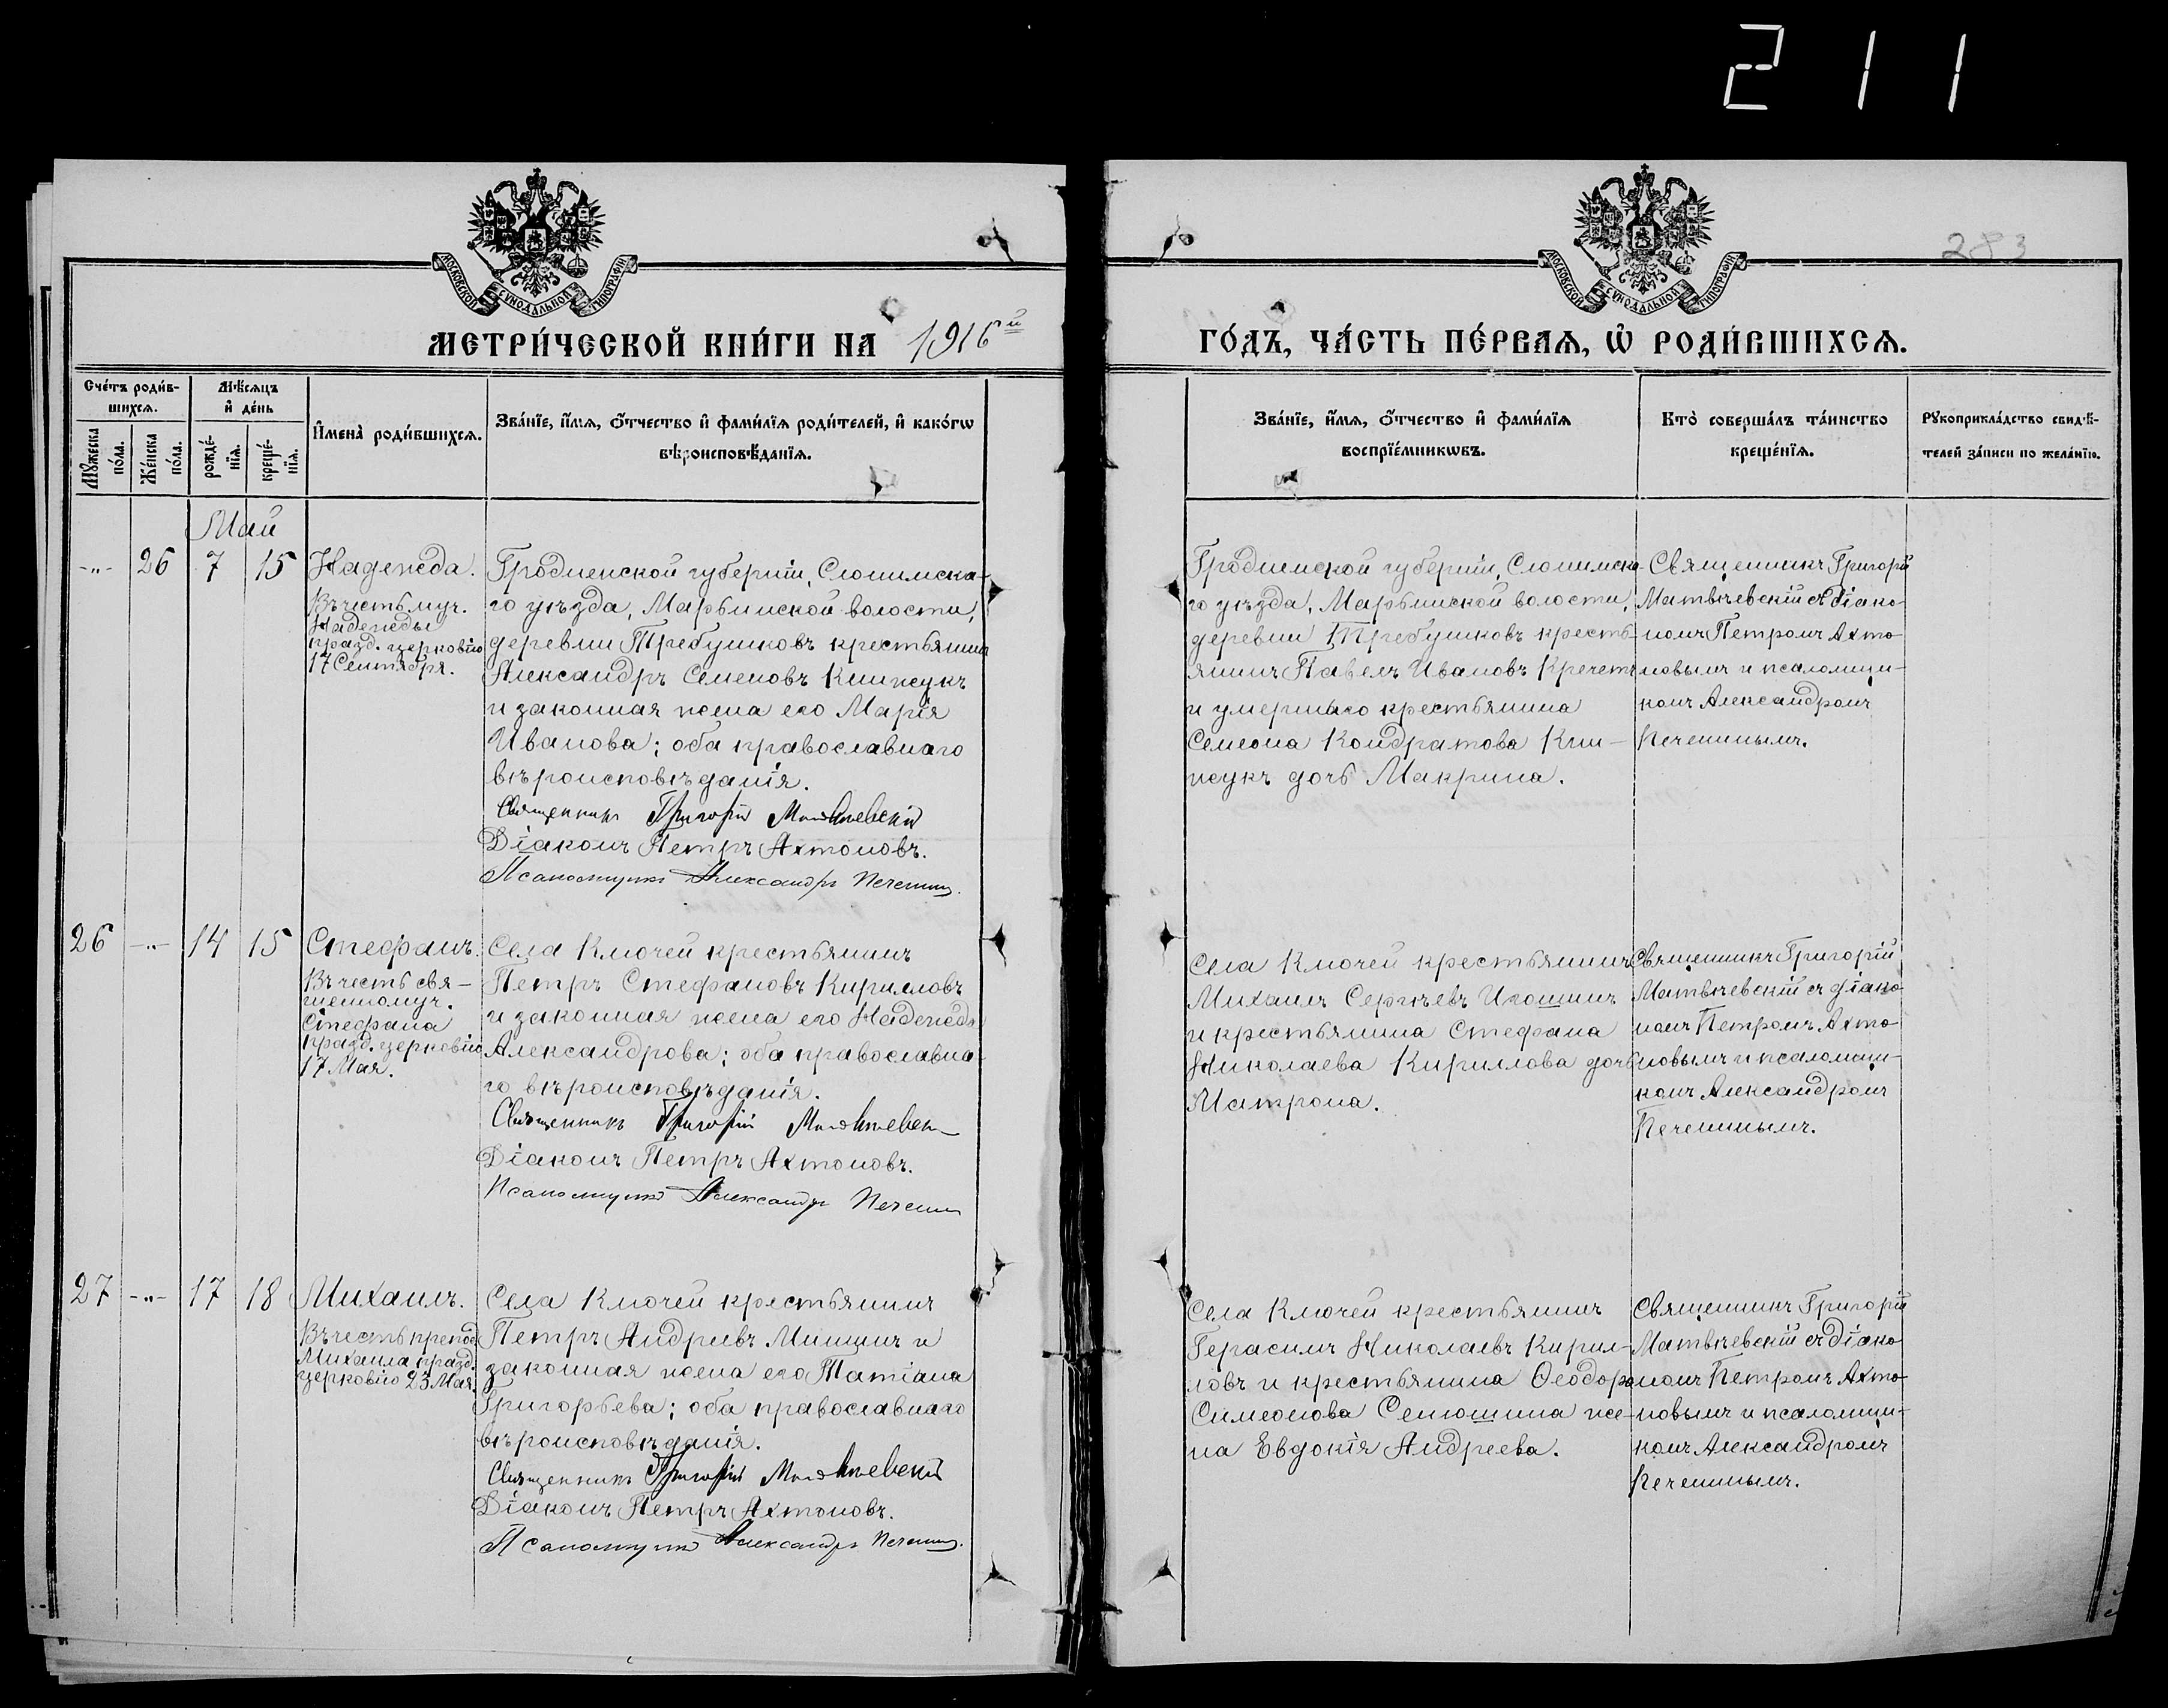 211
283
МОСКОВСКОЙ СѴНОДАЛЬНОЙ ТИПОГРАФІИ
МОСКОВСКОЙ СѴНОДАЛЬНОЙ ТИПОГРАФІИ
МЕТРИ́ЧЕСКОЙ КНИ́ГИ НА 1916й
ГО́ДЪ, ЧА́СТЬ ПЕ́РВАЯ, Ѡ҆ РОДИ́ВШИХСЯ.
Сче́тъ роди́в-
шихся.
Мꙋ́жеска
по́ла.
Же́нска
по́ла.
Мѣ́сяцъ
и҆ де́нь
рожде́-
нїя.
креще́-
нїя.
И҆мена̀ роди́вшихся.
Зва́нїе, и҆́мя, ѻ҆́тчество и҆ фами́лїя роди́телей, и҆ како́гѡ
вѣ́роисповѣ́данїя.
Зва́нїе, и҆́мя, ѻ҆́тчество и҆ фами́лїя
воспрїе́мникѡвъ.
Кто̀ соверша́лъ та́инство
креще́нїя.
Рꙋкоприкла́дство свидѣ́-
телей за́писи по жела́нїю.
Май
-"- 26 7 15 Надежда.
Въ честь муч.
Надежды
празд. церковію
17 Сентября.
Гродненской губерніи, Слонимска-
го уѣзда, Марьинской волости,
деревни Требушковъ крестьянинъ
Александръ Семеновъ Книжукъ
и законная жена его Марія
Иванова; оба православнаго
вѣроисповѣданія.
Священникъ Григорій Матвѣевскій
Діаконъ Петръ Ахтоновъ.
Псаломщикъ Александръ Печенинъ.
Гродненской губерніи, Слонимска-
го уѣзда, Марьинской волости,
деревни Требушковъ кресть-
янинъ Павелъ Ивановъ Кречетъ
и умершаго крестьянина
Семеона Кондратова Кни-
жукъ дочь Макрина.
Священникъ Григорій
Матвѣевскій съ діако-
номъ Петромъ Ахто-
новымъ и псаломщи-
комъ Александромъ
Печенинымъ.
26 -"- 14 15 Стефанъ.
Въ честь свя-
щенномуч.
Стефана
празд. церковію
17 Мая.
Села Ключей крестьянинъ
Петръ Стефановъ Кирилловъ
и законная жена его Надежда
Александрова; оба православна-
го вѣроисповѣданія.
Священникъ Григорій Матвѣевск
Діаконъ Петръ Ахтоновъ.
Псаломщикъ Александръ Печенин
Села Ключей крестьянинъ
Михаилъ Сергѣевъ Игошинъ
и крестьянина Стефана
Николаева Кириллова дочь
Матрона.
Священникъ Григорій
Матвѣевскій съ діако-
номъ Петромъ Ахто-
новымъ и псаломщи-
комъ Александромъ
Печенинымъ.
27 -"- 17 18 Михаилъ.
Въ честь препод.
Михаила празд.
церковію 23 Мая.
Села Ключей крестьянинъ
Петръ Андреевъ Мишинъ и
законная жена его Татіана
Григорьева; оба православнаго
вѣроисповѣданія.
Священникъ Григорій Матвѣевскій
Діаконъ Петръ Ахтоновъ.
Псаломщикъ Александръ Печенинъ.
Села Ключей крестьянинъ
Герасимъ Николаевъ Кирил-
ловъ и крестьянина Ѳеодора
Симеонова Сенюшина же-
на Евдокія Андреева.
Священникъ Григорій
Матвѣевскій съ діако-
номъ Петромъ Ахто-
новымъ и псаломщи-
комъ Александромъ
Печенинымъ.